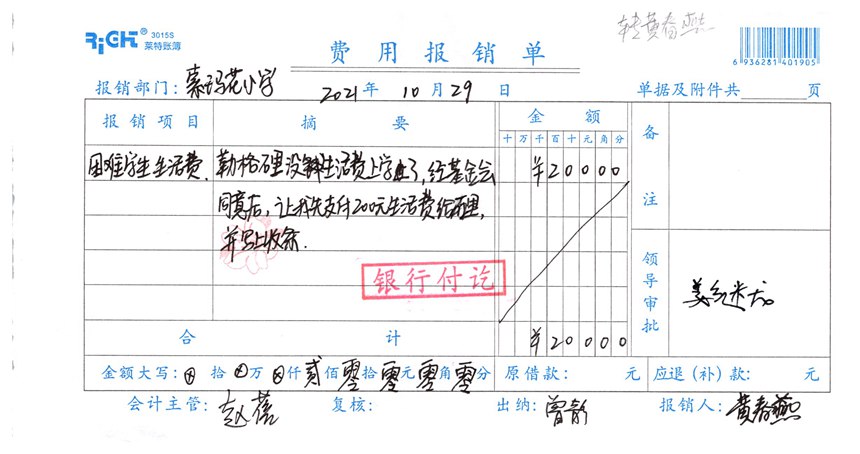 RiGHT® 3015S
莱特账簿
转黄春燕
费用报销单
6 936281 401905
报销部门: 索玛花小学 2021年10月29日 单据及附件共 页
报销项目 摘要 金额 备注
十万千百十元角分
困难学生生活费. 勒格石里没生活费上学了,经基金会 ¥20000
同意后,让我先支付200元生活费给石里,
并写上收条.
银行付讫
领导审批
合计 ¥20000
金额大写: ⊗拾⊗万⊗仟贰佰零拾零元零角零分 原借款: 元 应退(补)款: 元
会计主管: 赵蓓 复核: 出纳: 曾 报销人: 黄春燕